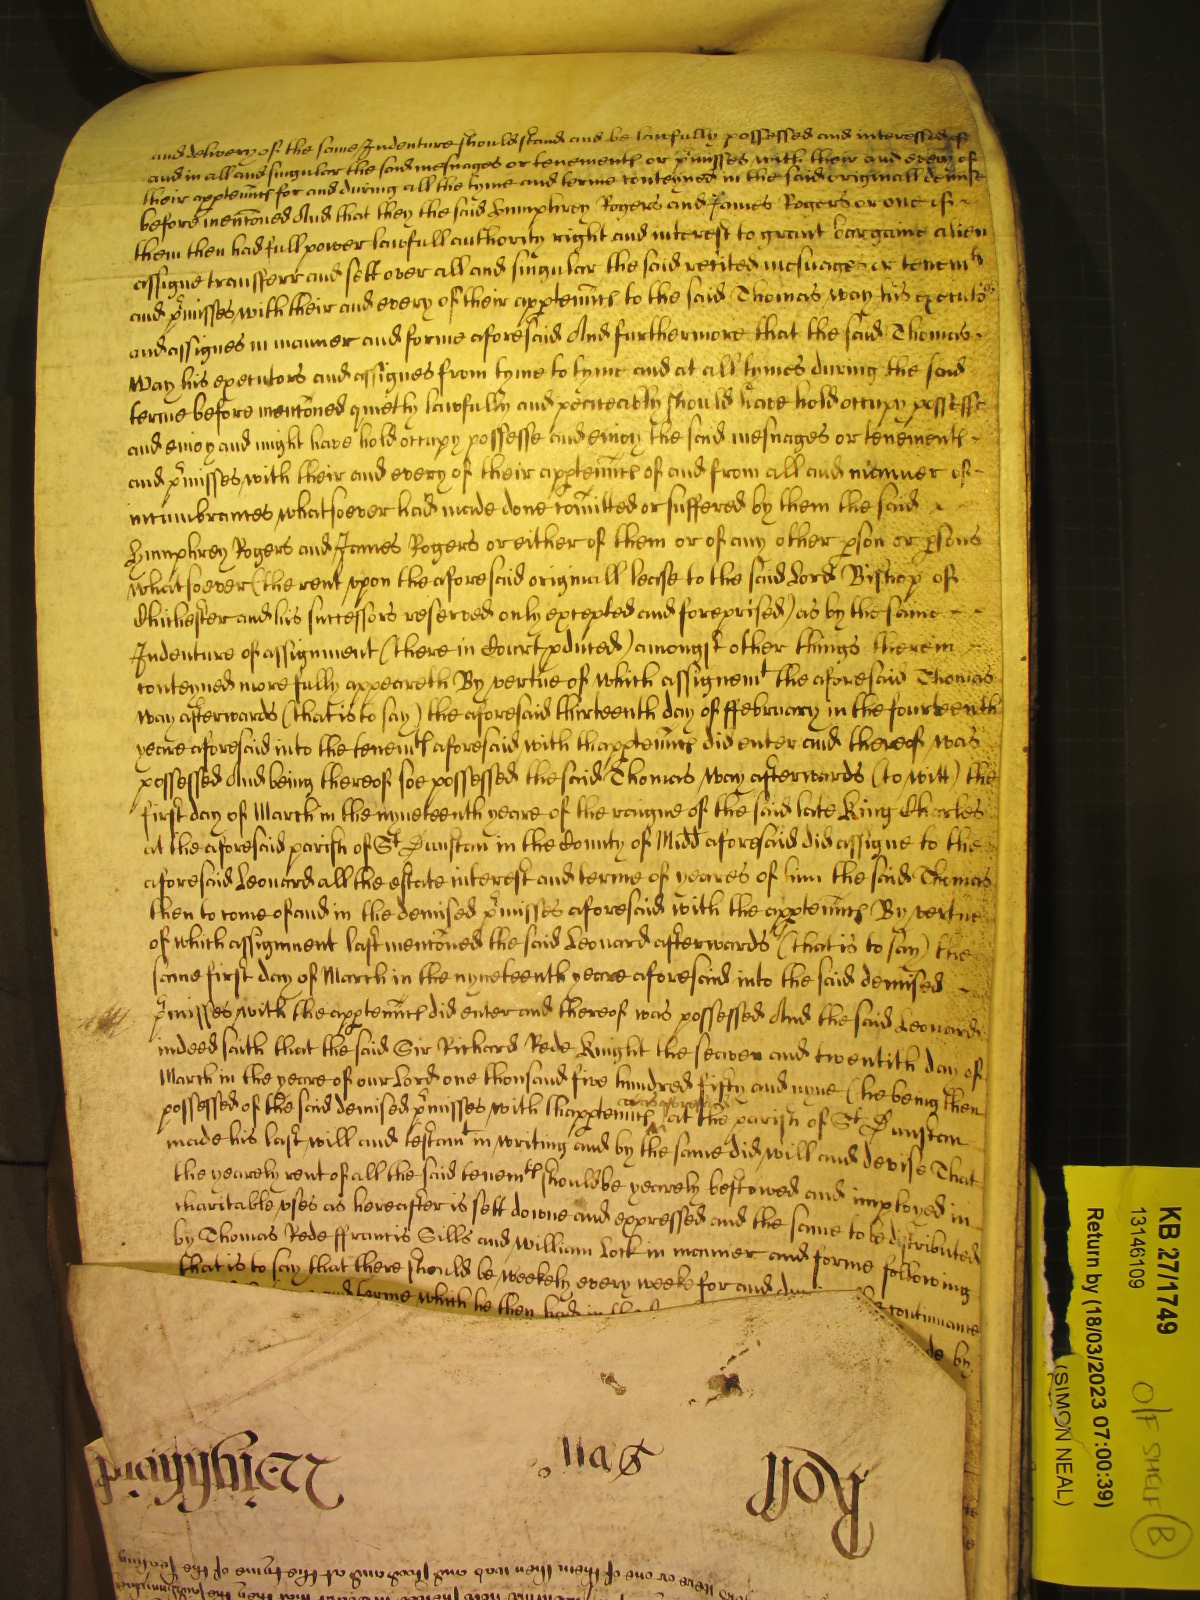 and delivery of the same Indenture should stand and be lawfully possessed and interessed of
and in all and singular the said mesuages or tenementes or p̄misses with their and every of
their apptennc̄es for and during all the tyme and terme conteyned in the said originall demise
before menc̄oned And that they the said Humphrey Rogers and James Rogers or one of
them then had full power lawfull authority right and interest to grant bargaine alien
assigne transferr and sett over all and singular the said recited mesuages or tenemts
and p̄misses with their and every of their apptennc̄es to the said Thomas Way his executors
and assignes in manner and forme aforesaid And furthermore that the said Thomas
Way his executors and assignes from tyme to tyme and at all tymes during the said
terme before menc̄oned quietly lawfully and peaceably should have hold occupy possesse
and enioy and might have hold occupy possesse and enioy the said mesuages or tenementes
and p̄misses with their and every of their apptennc̄es of and from all and manner of
incumbrances whatsoever had made done com̄itted or suffered by them the said
Humphrey Rogers and James Rogers or either of them or of any other pson or psons
whatsoever (the rent vpon the aforesaid originall lease to the said Lord Bishop of
Chichester and his successors reserved only excepted and foreprised) as by the same
Indenture of assignment (there in Court pduced) amongst other things therein
conteyned more fully appeareth By vertue of which assignemt the aforesaid Thomas
Way afterwards (that is to say) the aforesaid thirteenth day of ffebruary in the fourteenth
yeare aforesaid into the tenemts aforesaid with thapptennc̄es did enter and thereof was
possessed And being thereof soe possessed the said Thomas Way afterwards (to witt) the
first day of March in the nyneteenth yeare of the raigne of the said late King Charles
at the aforesaid parish of St Dunstan in the County of Midd aforesaid did assigne to the
aforesaid Leonard all the estate interest and terme of yeares of him the said Thomas
then to come of and in the demised p̄misses aforesaid with the apptennc̄es By vertue
of which assignment last menc̄oned the said Leonard afterwards (that is to say) the
same first day of March in the nyneteenth yeare aforesaid into the said demised
p̄misses with the apptennc̄es did enter and thereof was possessed And the said Leonard
indeed saith that the said Sir Richard Rede Knight the seaven and twentith day of
March in the yeare of our Lord one thousand five hundred fifty and nyne (he being then
possessed of the said demised p̄misses with thapptennc̄es at the parish of St Dunstan
made his last will and testamt in writing and by the same did will and devise That
the yearely rent of all the said tenemts should be yearely bestowed and imployed in
charitable vses as hereafter is sett downe and expressed and the same to be distributed
by Thomas Rede ffrancis Sills and William Lock in manner and forme following
that is to say that there should be weekely every weeke for and
and terme which he then had in the continuance
de by
Roll
Wightwick
KB 27/1749
13146109
Return by (18/03/2023 07:00:39)
(SIMON NEAL)
O/F SHELF
B